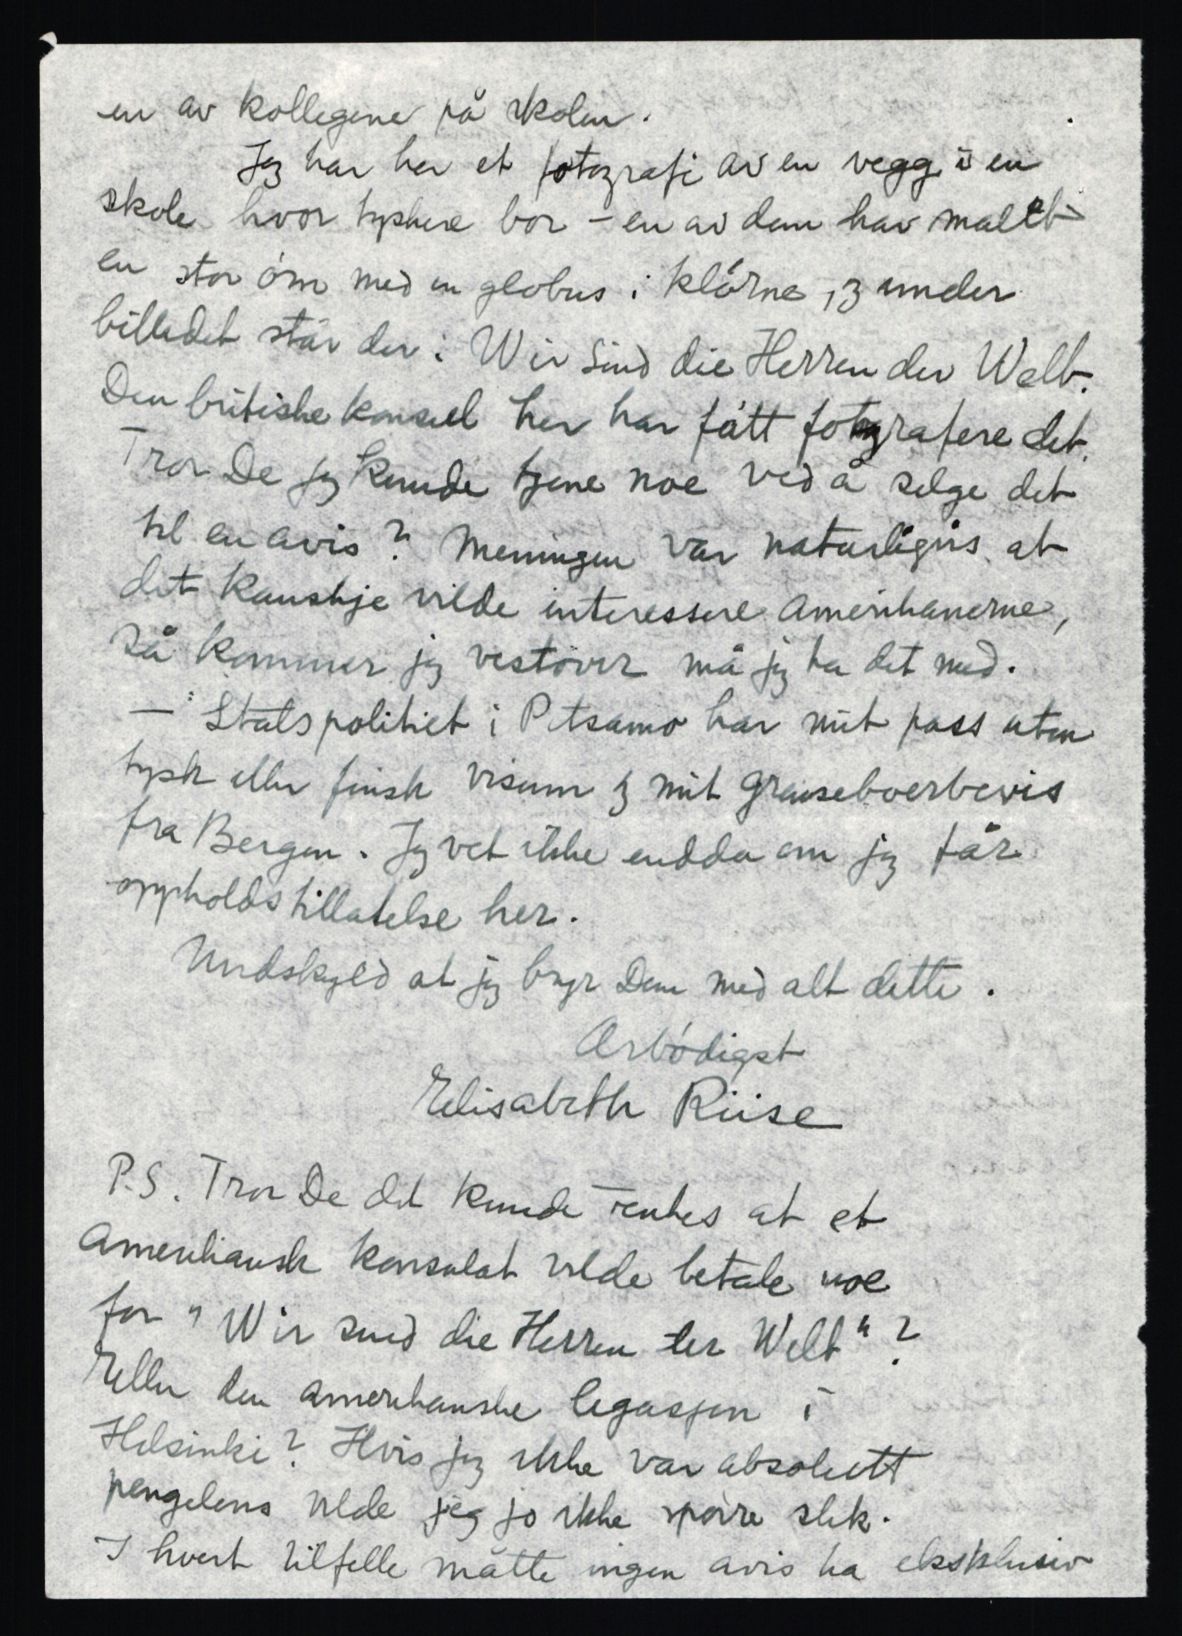 en av kollegene på skolen.
Jeg har her et fotografi av en vegg i en
skole hvor tyskere bor - en av dem har malet
en stor örn med en globus i klörne, og under
billedet står der: Wir sind die Herren der Welt.
Den britiske konsul her har fått fotografere det.
Tror De jeg kunde tjene noe ved å selge det
til en avis? Meningen var naturligvis at
det kanskje vilde interessere amerikanerne,
så kommer jeg vestover må jeg ha det med.
- Statspolitiet i Petsamo har mit pass uten
tysk eller finsk visum og mit grenseboerbevis
fra Bergen. Jeg vet ikke endda om jeg får
oppholdstillatelse her.
Undskyld at jeg bryr Dem med alt dette.
Ærbödigst
Elisabeth Riise
P.S. Tror De det kunde tenkes at et
Amerikansk konsulat vilde betale noe
for "Wir sind die Herren der Welt"?
Eller den amerikanske legasjon i
Helsinki? Hvis jeg ikke var absolutt
pengelens vilde jeg jo ikke spörre slik.
I hvert tilfelle måtte ingen avis ha eksklusiv